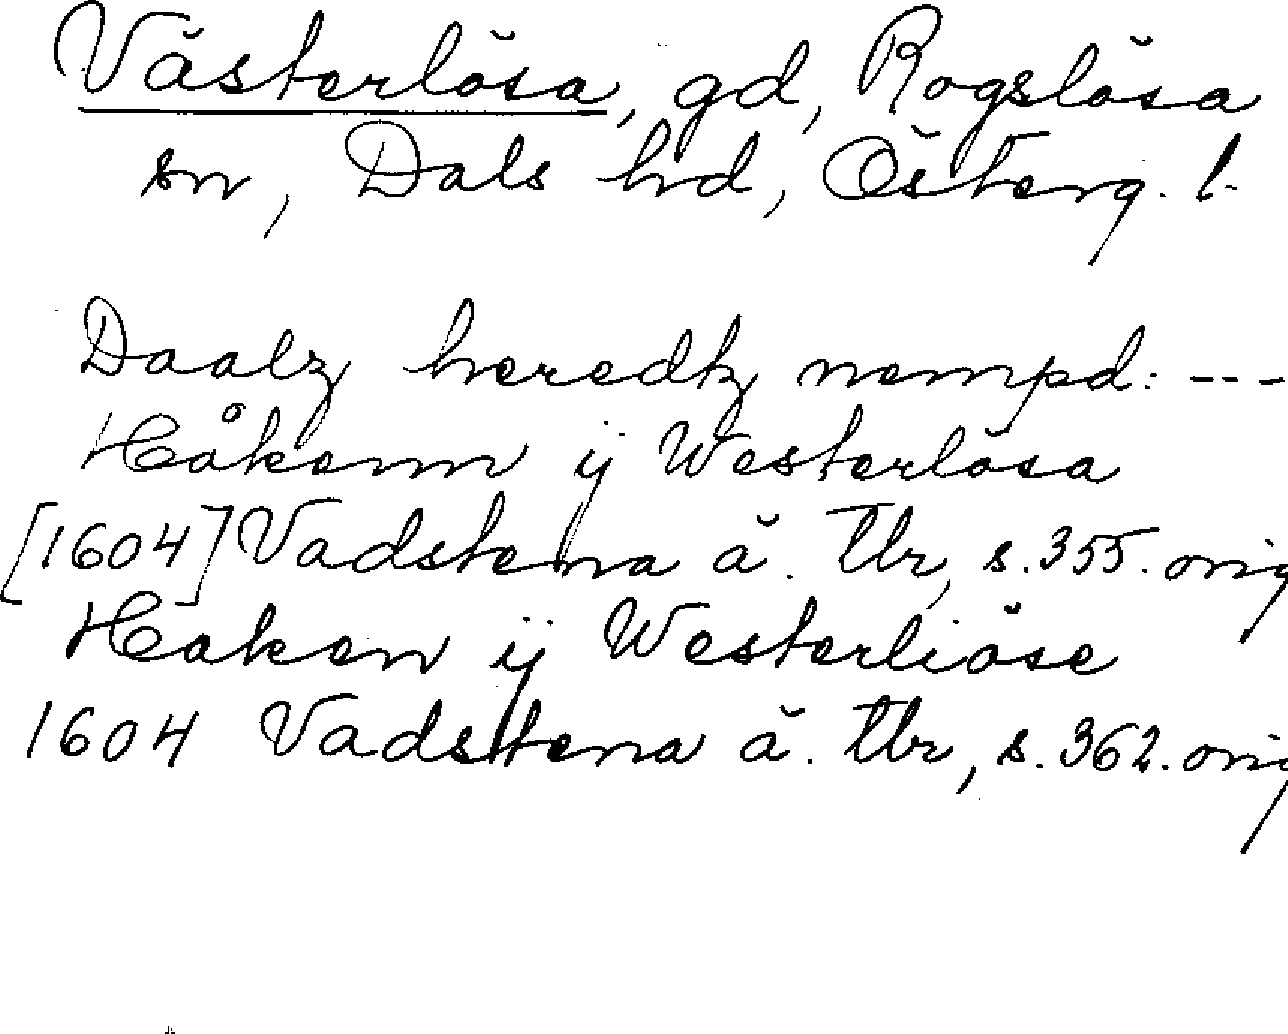 Västerlösa, gd, Rogslösa
sn, Dals hd, Österg. l.
Daalz heredtz nempd: ---
Håkenn ÿ Westerlösa
[1604] Vadstena ä. Tbr, s. 355. orig
Haken ÿ Westerliöse
1604 Vadstena ä. Tbr, s. 362. orig